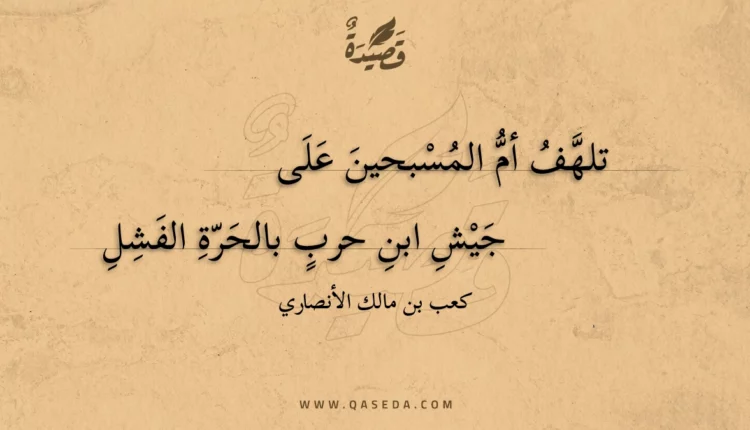 قَصِيدَةٌ
تلهَّفُ أمُّ المُسْبحينَ عَلَى
جَيْشِ ابنِ حربٍ بالحَرّةِ الفَشِلِ
كعب بن مالك الأنصاري
WWW.QASEDA.COM